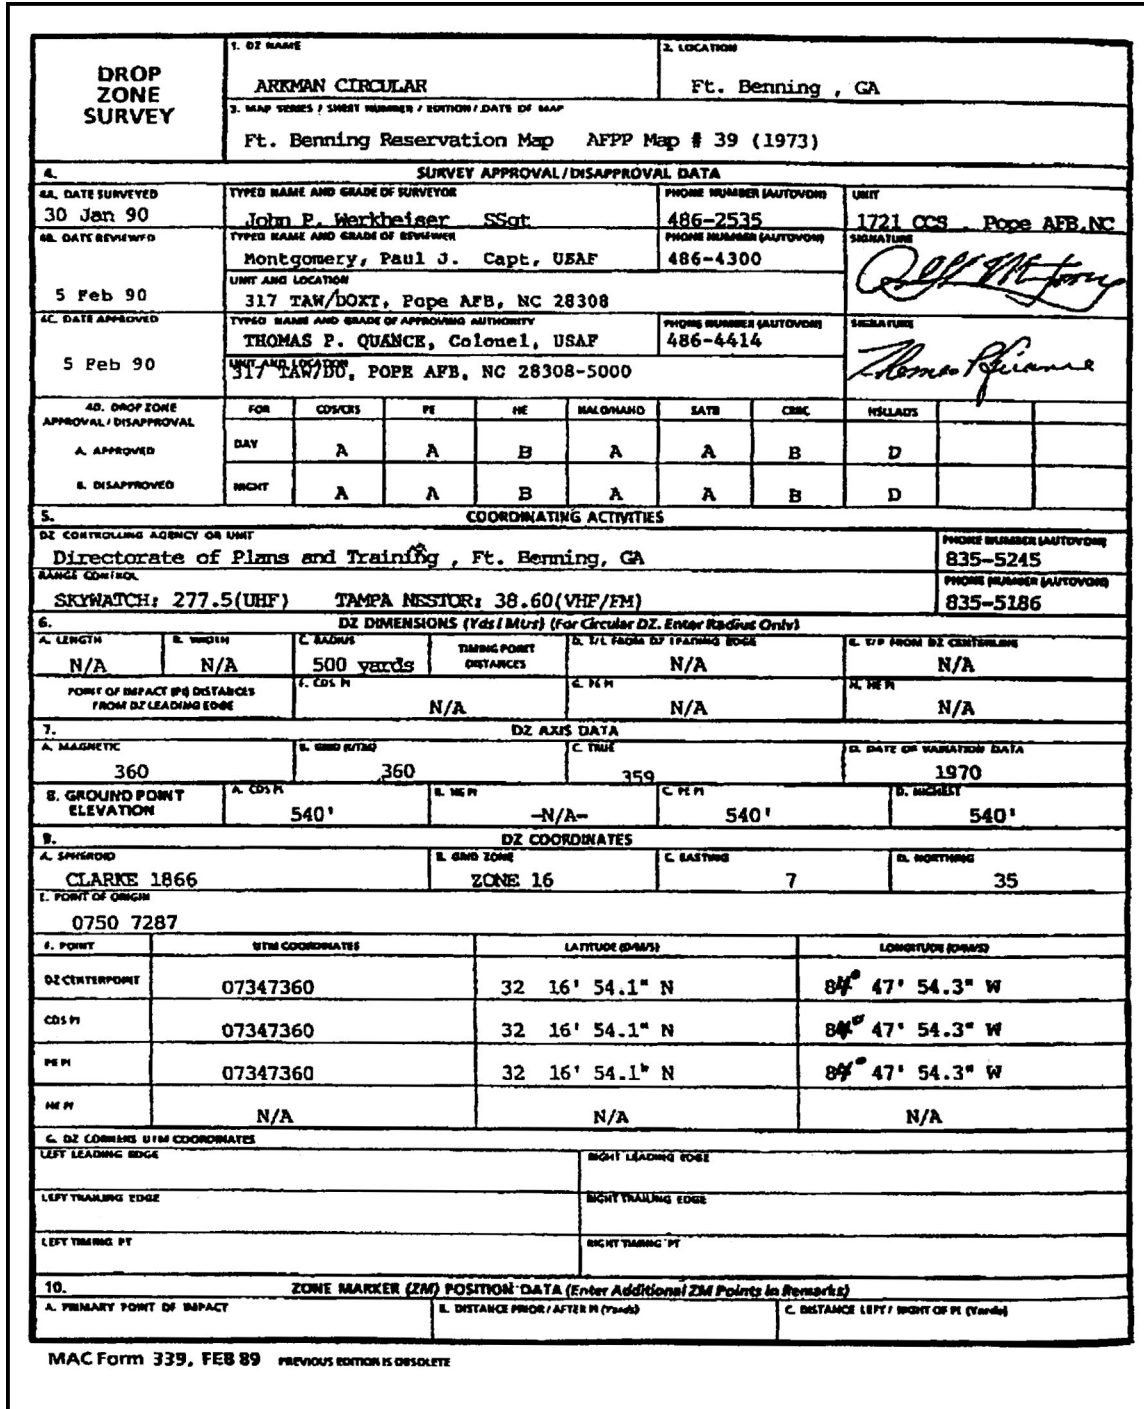 DROP
ZONE
SURVEY
1. DZ NAME
ARKMAN CIRCULAR
2. LOCATION
Ft. Benning , GA
3. MAP SERIES / SHEET NUMBER / EDITION / DATE OF MAP
Ft. Benning Reservation Map AFPP Map # 39 (1973)
4. SURVEY APPROVAL/DISAPPROVAL DATA
4A. DATE SURVEYED
30 Jan 90
TYPED NAME AND GRADE OF SURVEYOR
John P. Werkheiser SSgt
PHONE NUMBER (AUTOVON)
486-2535
UNIT
1721 CCS , Pope AFB,NC
4B. DATE REVIEWED
5 Feb 90
TYPED NAME AND GRADE OF REVIEWER
Montgomery, Paul J. Capt, USAF
PHONE NUMBER (AUTOVON)
486-4300
SIGNATURE
UNIT AND LOCATION
317 TAW/DOXT, Pope AFB, NC 28308
4C. DATE APPROVED
5 Feb 90
TYPED NAME AND GRADE OF APPROVING AUTHORITY
THOMAS P. QUANCE, Colonel, USAF
PHONE NUMBER (AUTOVON)
486-4414
SIGNATURE
UNIT AND LOCATION
317 TAW/DO, POPE AFB, NC 28308-5000
4D. DROP ZONE
APPROVAL / DISAPPROVAL
A. APPROVED
B. DISAPPROVED
FOR CDS/CRS PE HE HALO/HAHO SATB CRRC HSLLADS
DAY A A B A A B D
NIGHT A A B A A B D
5. COORDINATING ACTIVITIES
DZ CONTROLLING AGENCY OR UNIT
Directorate of Plans and Training , Ft. Benning, GA
PHONE NUMBER (AUTOVON)
835-5245
RANGE CONTROL
SKYWATCH: 277.5(UHF) TAMPA NESTOR: 38.60(VHF/FM)
PHONE NUMBER (AUTOVON)
835-5186
6. DZ DIMENSIONS (Yds/Mtrs) (For Circular DZ. Enter Radius Only)
A. LENGTH
N/A
B. WIDTH
N/A
C. RADIUS
500 yards
TIMING POINT
DISTANCES
D. T/L FROM DZ LEADING EDGE
N/A
E. T/P FROM DZ CENTERLINE
N/A
POINT OF IMPACT (PI) DISTANCES
FROM DZ LEADING EDGE
F. CDS PI
N/A
G. PE PI
N/A
H. HE PI
N/A
7. DZ AXIS DATA
A. MAGNETIC
360
B. GRID (UTM)
360
C. TRUE
359
D. DATE OF VARIATION DATA
1970
8. GROUND POINT
ELEVATION
A. CDS PI
540'
B. HE PI
-N/A-
C. PE PI
540'
D. HIGHEST
540'
9. DZ COORDINATES
A. SPHEROID
CLARKE 1866
B. GRID ZONE
ZONE 16
C. EASTING
7
D. NORTHING
35
E. POINT OF ORIGIN
0750 7287
F. POINT UTM COORDINATES LATITUDE (D/M/S) LONGITUDE (D/M/S)
DZ CENTERPOINT 07347360 32 16' 54.1" N 84° 47' 54.3" W
CDS PI 07347360 32 16' 54.1" N 84° 47' 54.3" W
PE PI 07347360 32 16' 54.1" N 84° 47' 54.3" W
HE PI N/A N/A N/A
G. DZ CORNERS UTM COORDINATES
LEFT LEADING EDGE
RIGHT LEADING EDGE
LEFT TRAILING EDGE
RIGHT TRAILING EDGE
LEFT TIMING PT
RIGHT TIMING PT
10. ZONE MARKER (ZM) POSITION DATA (Enter Additional ZM Points in Remarks)
A. PRIMARY POINT OF IMPACT
B. DISTANCE PRIOR / AFTER PI (Yards)
C. DISTANCE LEFT / RIGHT OF PI (Yards)
MAC Form 339, FEB 89 PREVIOUS EDITION IS OBSOLETE